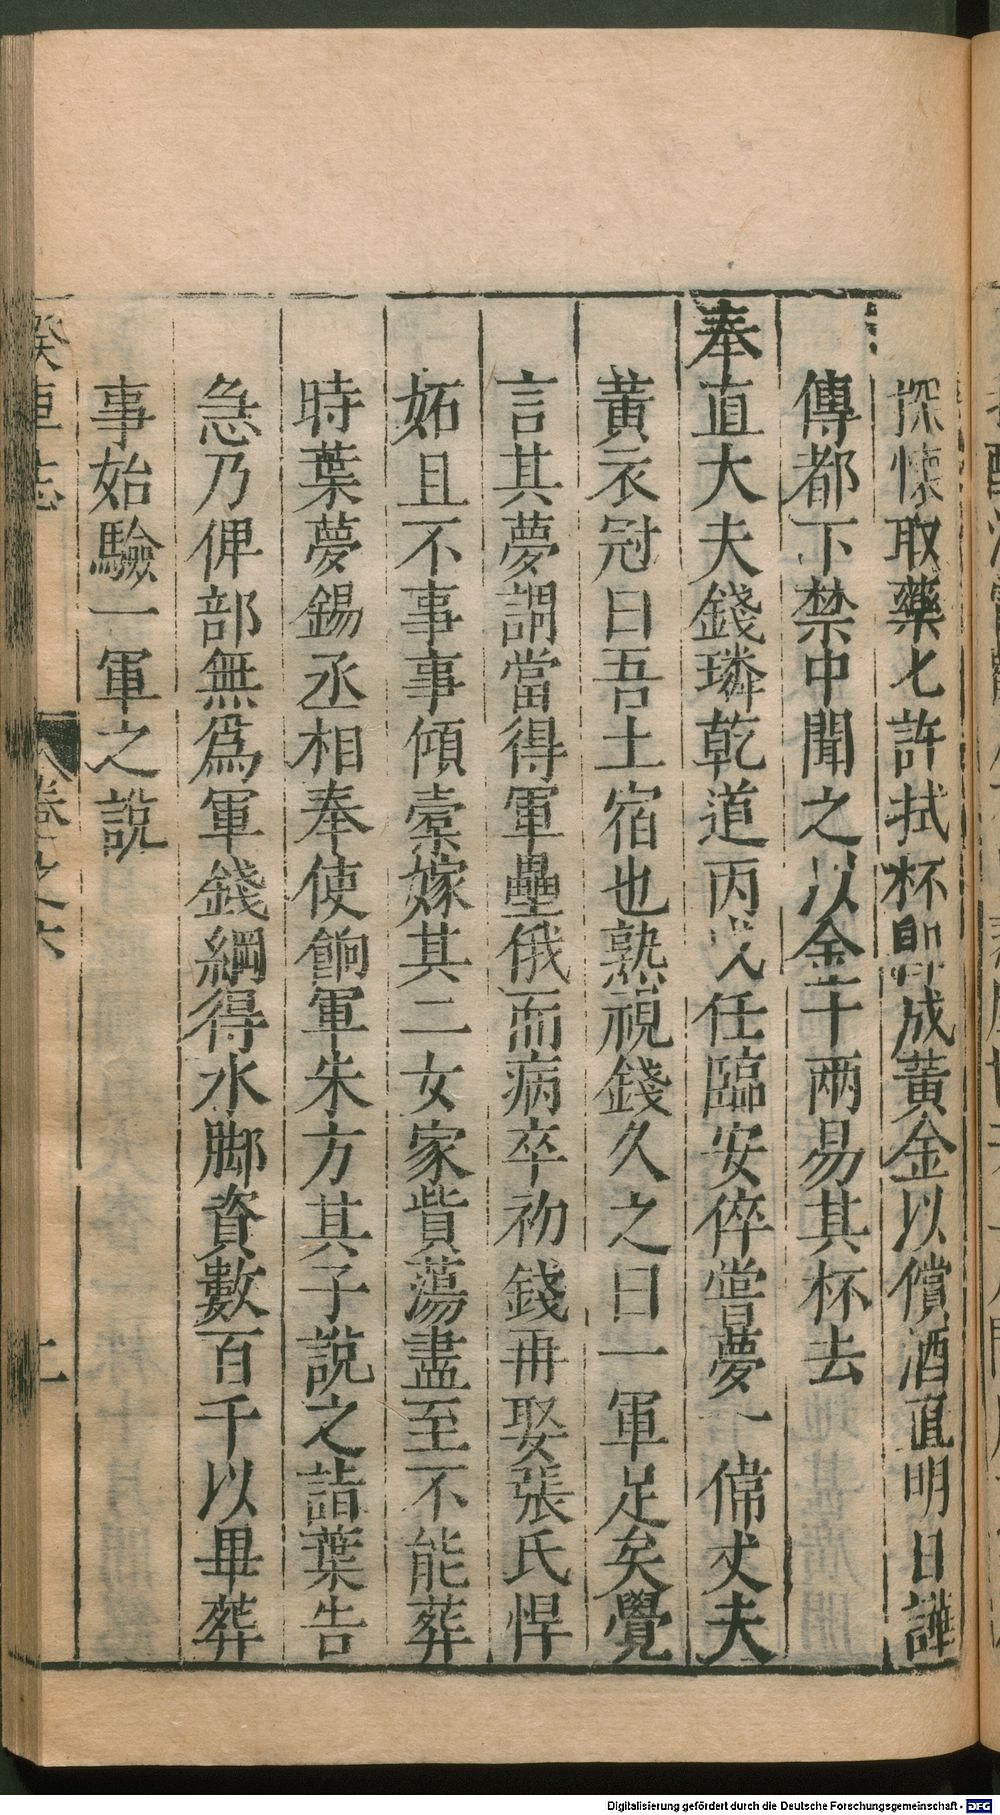 探懷取藥七許拭杯即成黃金以償酒直明日譁
傳都下禁中聞之以金十兩易其杯去
奉直大夫錢璘乾道丙戌任臨安倅嘗夢一偉丈夫
黃衣冠曰吾土宿也熟視錢久之曰一軍足矣覺
言其夢謂當得軍壘俄而病卒初錢再娶張氏悍
妬且不事事傾橐嫁其二女家貲蕩盡至不能葬
時葉夢錫丞相奉使餉軍朱方其子說之詣葉告
急乃俾部無爲軍錢綱得水腳資數百千以畢葬
事始驗一軍之說
睽車志 卷之六 上
Digitalisierung gefördert durch die Deutsche Forschungsgemeinschaft - DFG